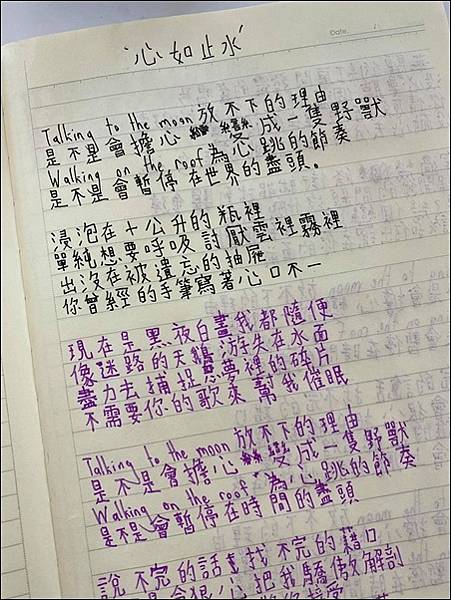 Date.
心如止水
Talking to the moon 放不下的理由
是不是會擔心 變成一隻野獸
Walking on the roof 為心跳的節奏
是不是會暫停在世界的盡頭.
浸泡在十公升的瓶裡
單純想要呼吸討厭雲裡霧裡
出沒在被遺忘的抽屜
你曾經的手筆寫著心口不一
現在是黑夜白晝我都隨便
像迷路的天鵝游失在水面
盡力去捕捉惡夢裡的碎片
不需要你的歌來幫我催眠
Talking to the moon 放不下的理由
是不是會擔心 變成一隻野獸
Walking on the roof 為心跳的節奏
是不是會暫停在時間的盡頭
說不完的話 找不完的藉口
狠心把我驕傲解剖